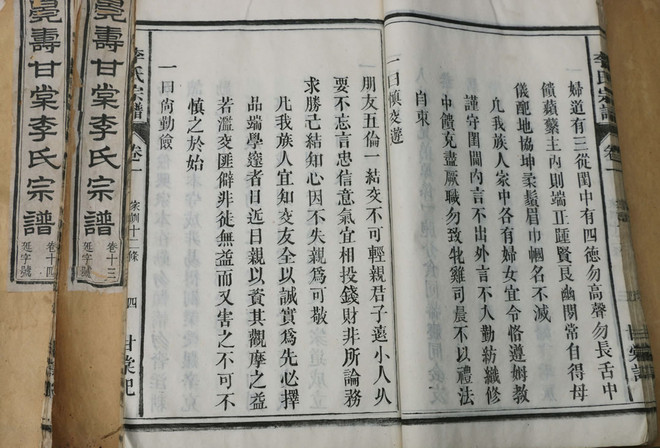 李氏宗譜
卷一
婦道有三從閨中有四德勿高聲勿長舌中
饋蘋蘩主內則端正踵賢良幽閒常自得母
儀配地協坤柔鬚眉巾幗名不減
凡我族人家中各有婦女宜令恪遵姆教
謹守閨閫內言不出外言不入勤紡織修
中饋克盡厥職勿致牝雞司晨不以禮法
自束
一曰慎交遊
朋友五倫一結交不可輕親君子遠小人久
要不忘言忠信意氣宜相投錢財非所論務
求勝己結知心因不失親為可敬
凡我族人宜知交友全以誠實為先必擇
品端學邃者日近日親以資其觀摩之益
若濫交匪僻非徒無益而又害之不可不
慎之於始
一曰尚勤儉
李氏宗譜
卷一
家訓十二條
四
甘棠記
壽甘棠李氏宗譜
卷十三
字號
壽甘棠李氏宗譜
卷十四
字號